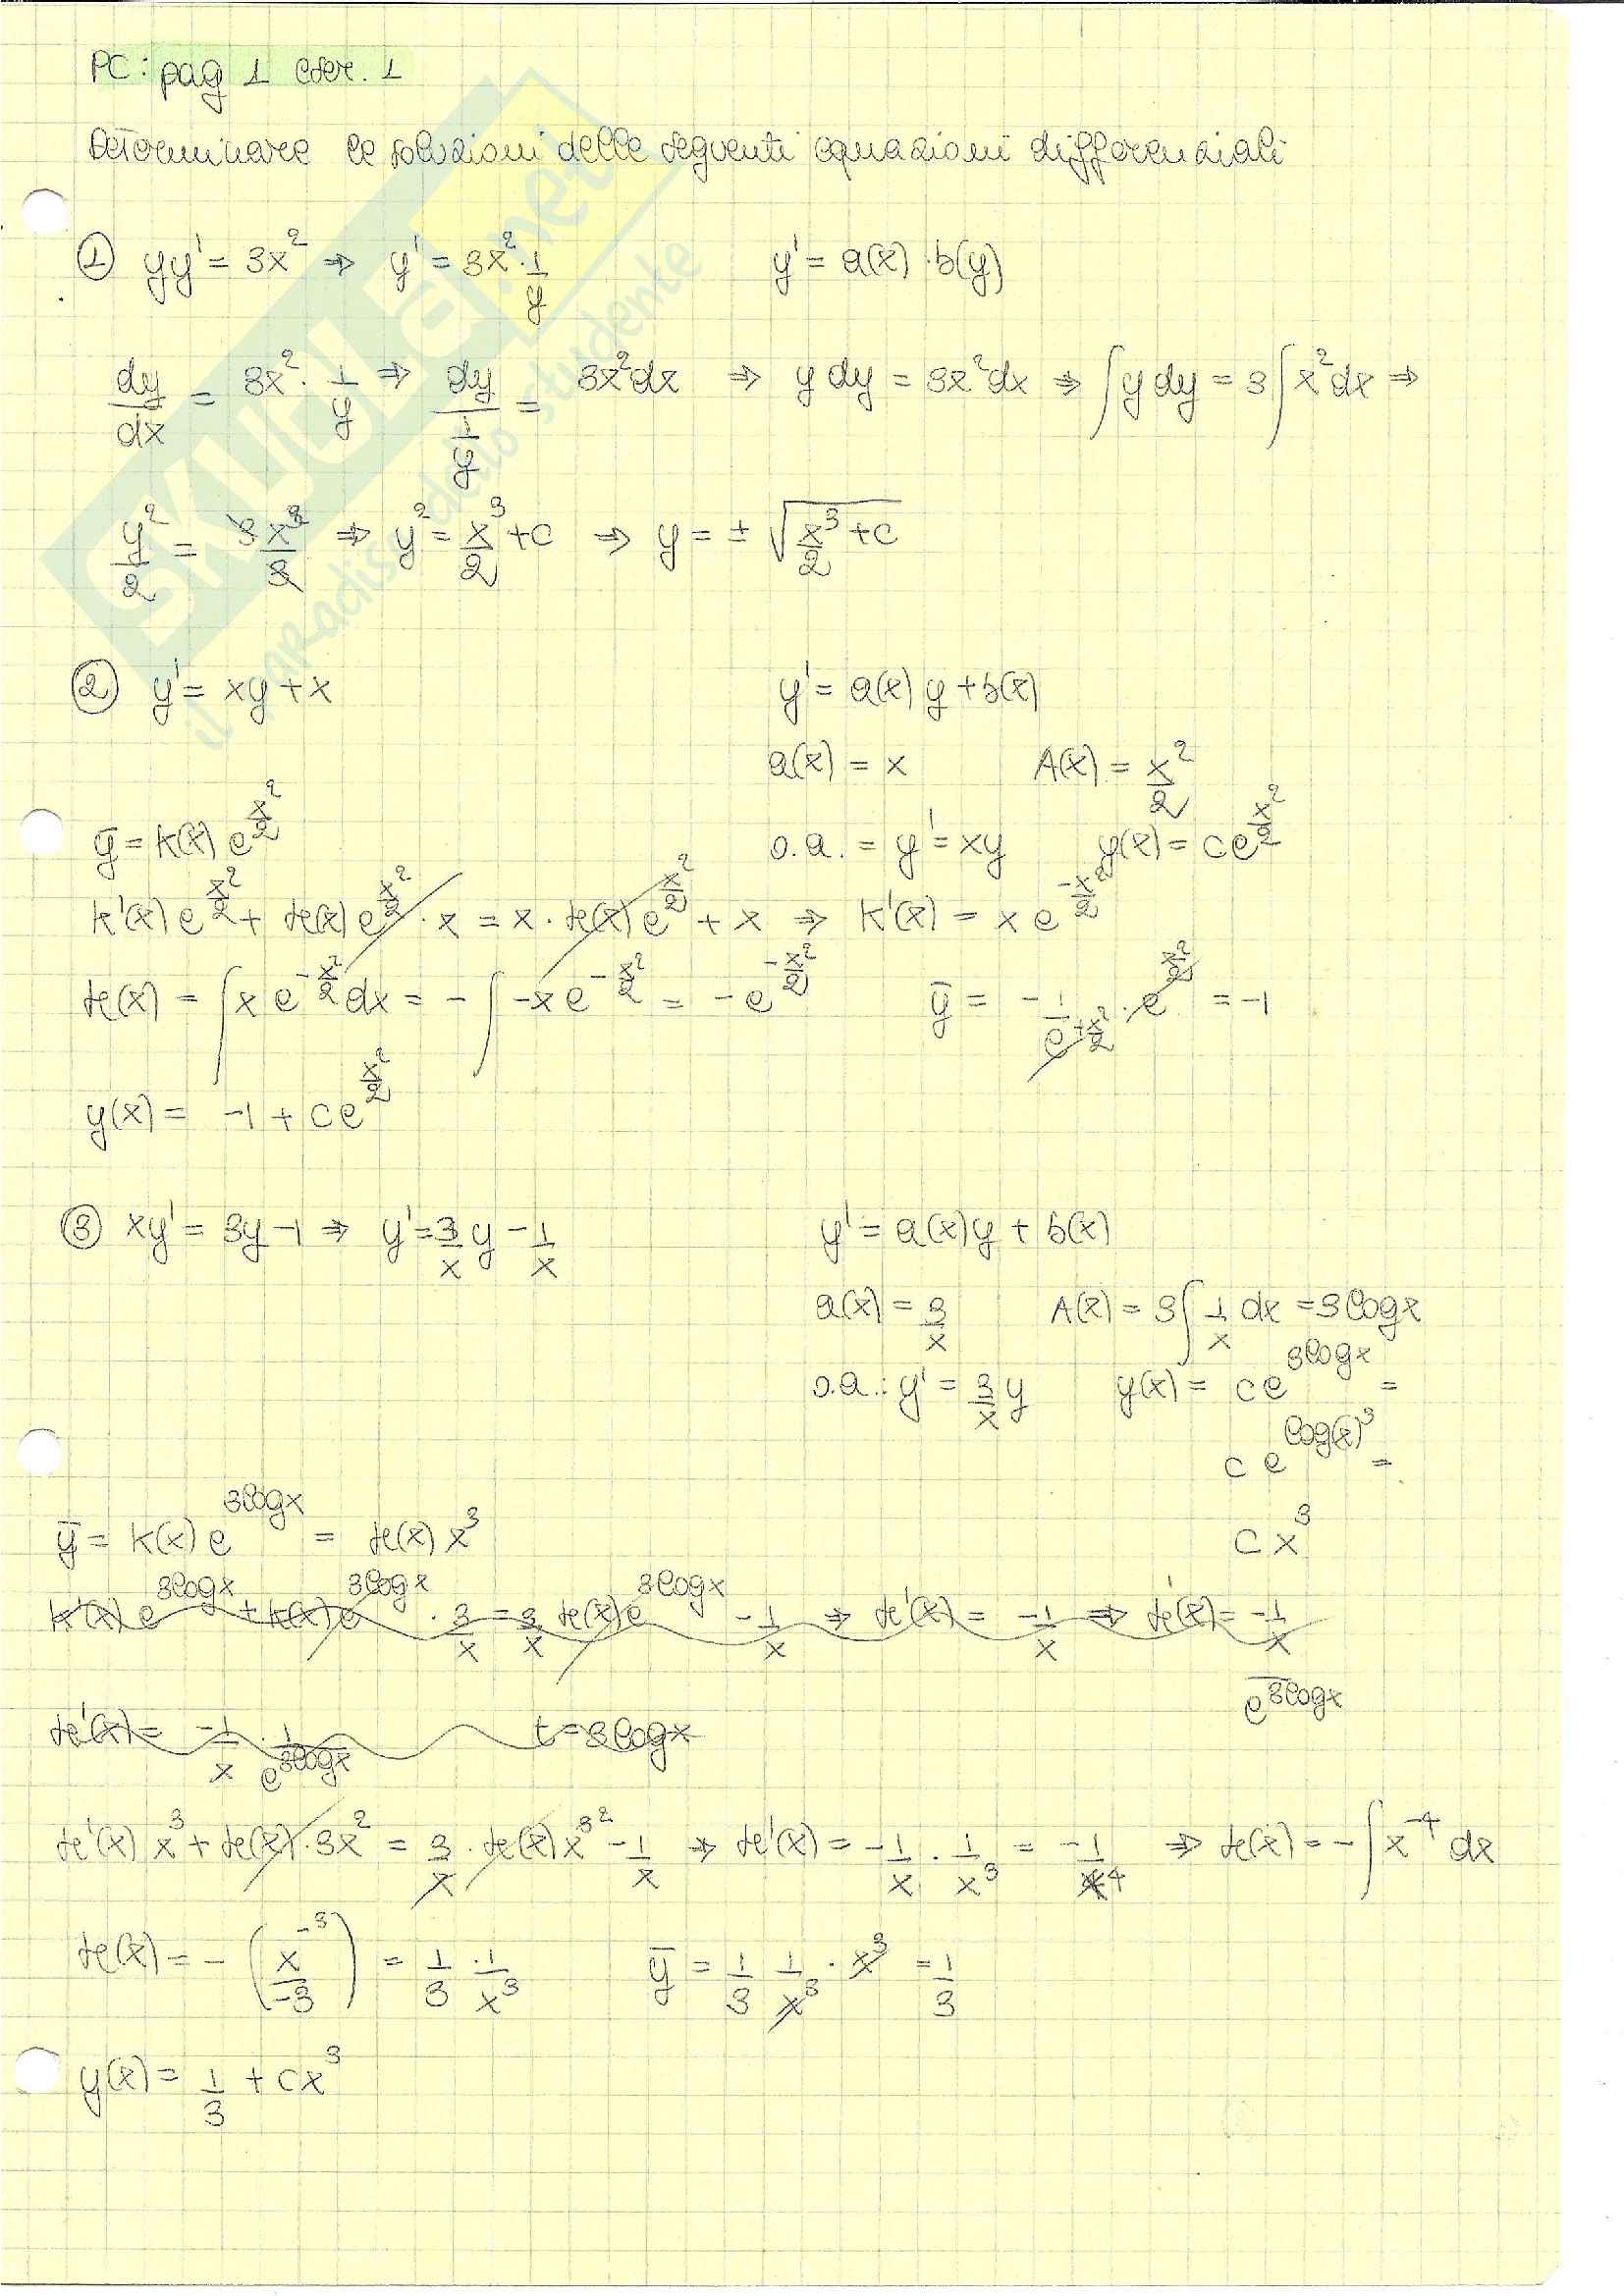 PC: pag 1 eser. 1
Determinare le soluzioni delle seguenti equazioni differenziali
① yy' = 3x² ⇒ y' = 3x² · 1/y    y' = a(x) · b(y)
dy/dx = 3x² · 1/y ⇒ dy/(1/y) = 3x²dx ⇒ y dy = 3x²dx ⇒ ∫y dy = 3∫x²dx ⇒
y²/2 = 3x³/3 ⇒ y² = x³/2 + c ⇒ y = ± √(x³/2 + c)
② y' = xy + x    y' = a(x) y + b(x)
a(x) = x    A(x) = x²/2
ȳ = k(x) e^(x²/2)    o.a. = y' = xy    y(x) = c e^(x²/2)
k'(x) e^(x²/2) + k(x) e^(x²/2) · x = x · k(x) e^(x²/2) + x ⇒ k'(x) = x e^(-x²/2)
k(x) = ∫x e^(-x²/2) dx = - ∫-x e^(-x²/2) = - e^(-x²/2)    ȳ = - 1/e^(+x²/2) · e^(x²/2) = -1
y(x) = -1 + c e^(x²/2)
③ xy' = 3y - 1 ⇒ y' = 3/x y - 1/x    y' = a(x)y + b(x)
a(x) = 3/x    A(x) = 3∫1/x dx = 3logx
o.a.: y' = 3/x y    y(x) = c e^(3logx) =
c e^(log(x)³) =
ȳ = k(x) e^(3logx) = k(x) x³    c x³
k'(x) e^(3logx) + k(x) e^(3logx) · 3/x = 3/x k(x) e^(3logx) - 1/x ⇒ k'(x) = -1/x ⇒ k'(x) = (-1/x)/e^(3logx)
k'(x) = -1/x · 1/e^(3logx)    t = 3logx
k'(x) x³ + k(x) · 3x² = 3/x · k(x) x³² - 1/x ⇒ k'(x) = -1/x · 1/x³ = -1/x⁴ ⇒ k(x) = -∫x⁻⁴ dx
k(x) = - (x⁻³/-3) = 1/3 · 1/x³    ȳ = 1/3 1/x³ · x³ = 1/3
y(x) = 1/3 + cx³
SKUOLA.net
il paradiso dello studente